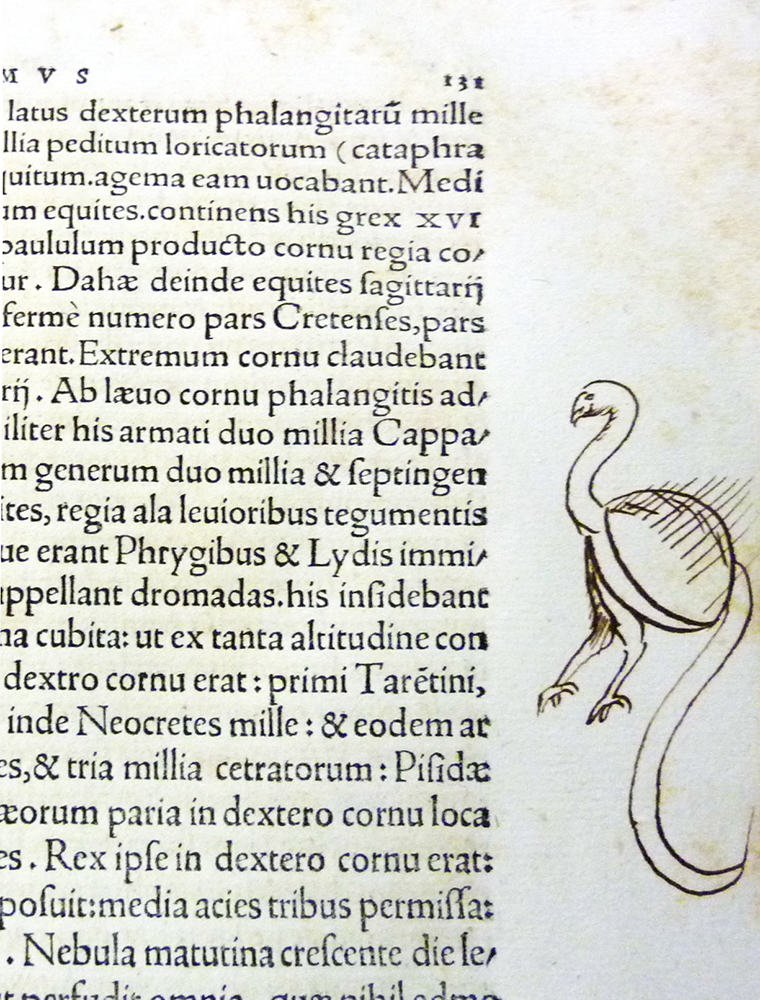 M V S 131
latus dexterum phalangitarū mille
llia peditum loricatorum (cataphra
quitum.agema eam uocabant.Medi
um equites.continens his grex XVI
paululum producto cornu regia co⸗
ur. Dahæ deinde equites ſagittarij
fermè numero pars Cretenſes,pars
erant.Extremum cornu claudebant
rij. Ab læuo cornu phalangitis ad⸗
iliter his armati duo millia Cappa⸗
m generum duo millia & ſeptingen
ites, regia ala leuioribus tegumentis
ue erant Phrygibus & Lydis immi⸗
appellant dromadas.his inſidebant
na cubita: ut ex tanta altitudine con
dextro cornu erat: primi Tarẽtini,
inde Neocretes mille: & eodem ar
es,& tria millia cetratorum: Piſidæ
æorum paria in dextero cornu loca
es. Rex ipſe in dextero cornu erat:
poſuit:media acies tribus permiſſa:
. Nebula matutina creſcente die le⸗
perfudit omnia, quæ nihil admo